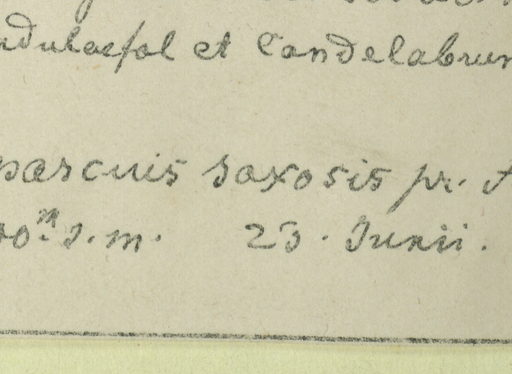 ndulaefol et Candelabrum
pascuis saxosis pr.
00ᵐ. s. m. 23. Junii.